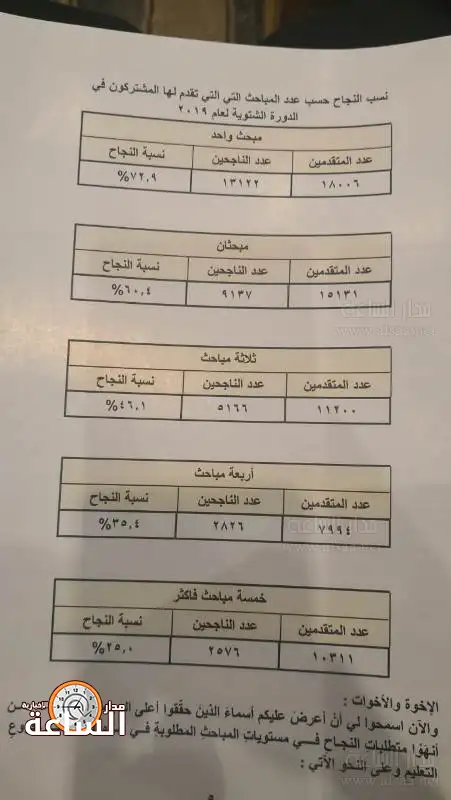 نسب النجاح حسب عدد المباحث التي التي تقدم لها المشتركون في
الدورة الشتوية لعام ٢٠١٩
مبحث واحد
عدد المتقدمين عدد الناجحين نسبة النجاح
١٨٠٠٦ ١٣١٢٢ ٧٢,٩%
مبحثان
عدد المتقدمين عدد الناجحين نسبة النجاح
١٥١٣١ ٩١٣٧ ٦٠,٤%
مدار الساعة
ثلاثة مباحث
عدد المتقدمين عدد الناجحين نسبة النجاح
١١٢٠٠ ٥١٦٦ ٤٦,١%
أربعة مباحث
عدد المتقدمين عدد الناجحين نسبة النجاح
٧٩٩٤ ٢٨٢٦ ٣٥,٤%
مدار الساعة
خمسة مباحث فأكثر
عدد المتقدمين عدد الناجحين نسبة النجاح
١٠٣١١ ٢٥٧٦ ٢٥,٠%
الإخوة والأخوات :
والآن اسمحوا لي أنْ أعرضَ عليكم أسماءَ الذين حقّقوا أعلى
أنهَوْا متطلباتِ النجاح فـــي مستوياتِ المباحثِ المطلوبةِ في
التعليم وعلى النحو الآتي :
مدار الساعة الاخبارية
٥